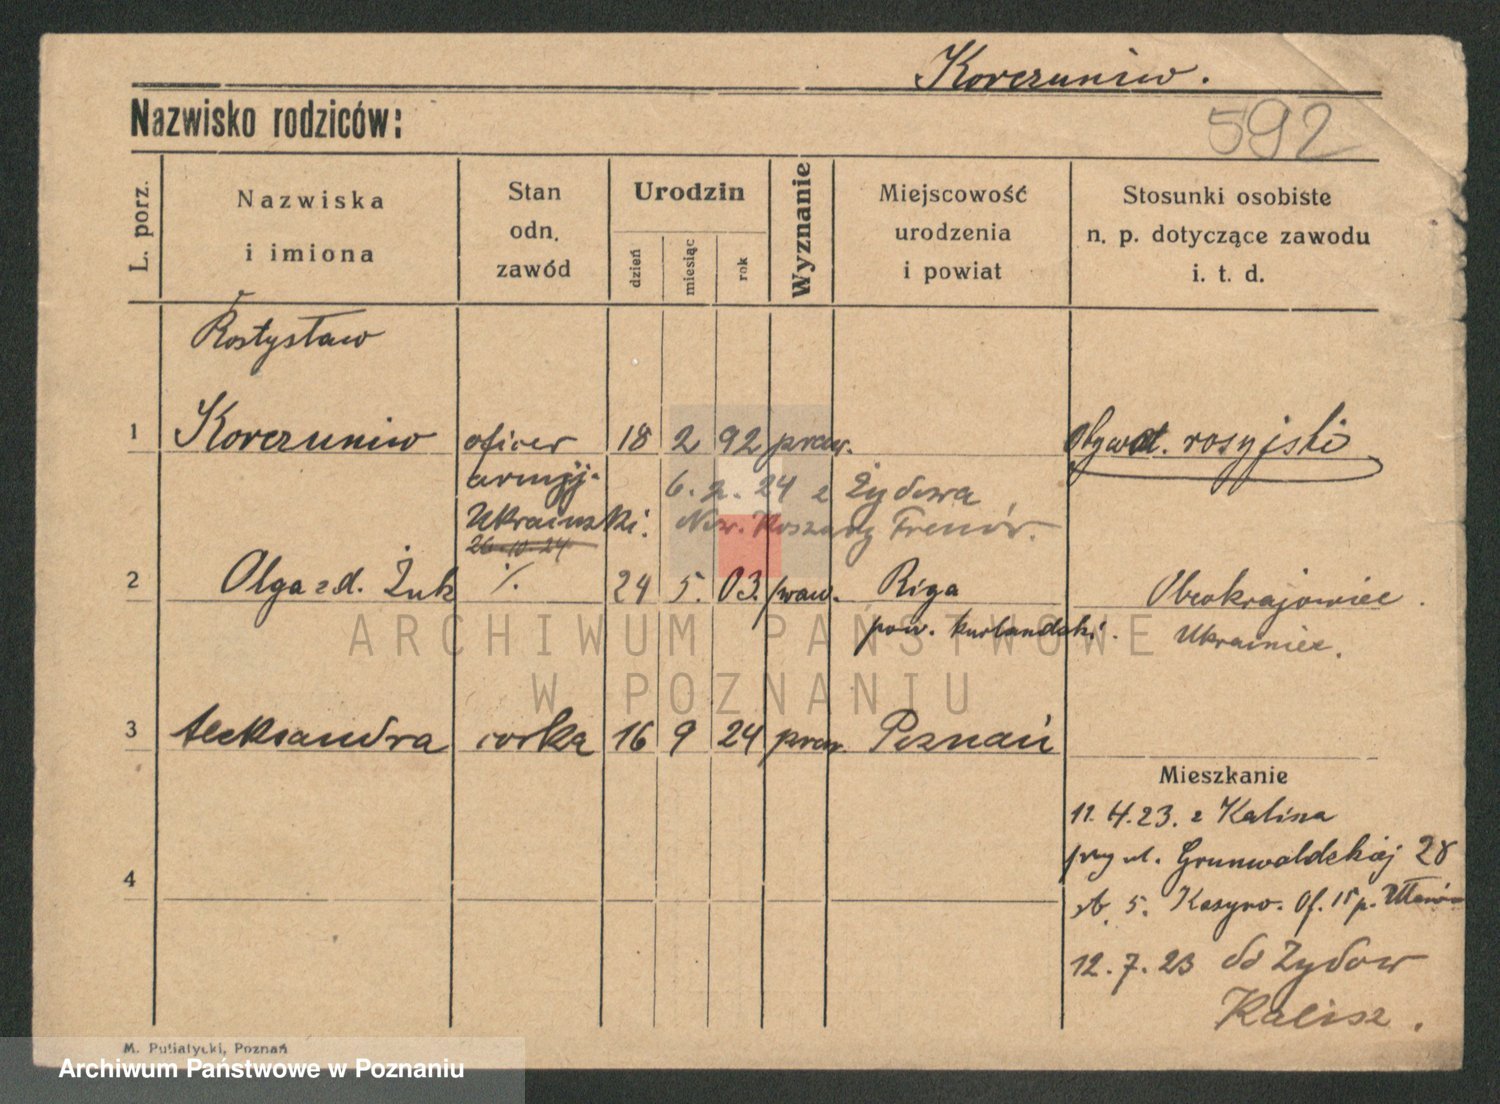 Korczuniw.
Nazwisko rodziców:
592
L. porz.
Nazwiska
i imiona
Stan
odn.
zawód
Urodzin
dzień
miesiąc
rok
Wyznanie
Miejscowość
urodzenia
i powiat
Stosunki osobiste
n. p. dotyczące zawodu
i. t. d.
Rostysław
1 Korczuniw oficer 18 2 92 praw. Obywat. rosyjski
armji
Ukraiński.
6. 2. 24 z Żydowa
Now. Koszary Trenów.
26.10.24
2 Olga z d. Żuk %. 24 5. 03. praw. Ryga Obcokrajowiec.
pow. kurlandski. Ukrainiec.
3 Aleksandra córka 16 9 24 praw. Poznań
Mieszkanie
11. 4. 23. z Kalisza
przy ul. Grunwaldzkiej 28
5. Kasyno. Of. 15 p. Ułanów
4
12. 7. 23 do Żydow
Kalisz.
M. Putiatycki, Poznań
ARCHIWUM PAŃSTWOWE
W POZNANIU
Archiwum Państwowe w Poznaniu